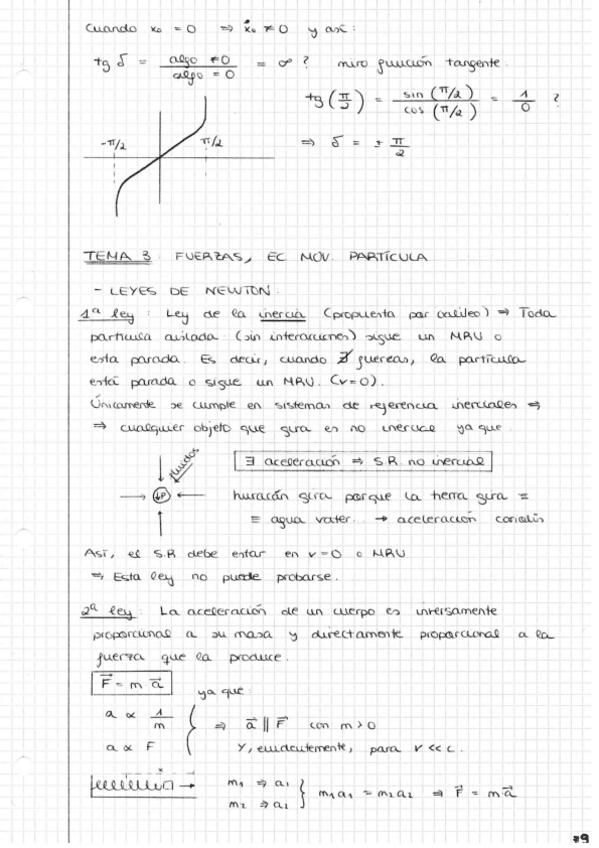 Cuando x₀ = 0 ⇒ ẋ₀ ≠ 0 y así:
tg δ = algo ≠0 / algo = 0 = ∞ ? miro función tangente.
tg(π/2) = sin(π/2) / cos(π/2) = 1/0 ?
-π/2 π/2 ⇒ δ = ± π/2
TEMA 3: FUERZAS, EC MOV. PARTÍCULA
- LEYES DE NEWTON:
1ª ley: Ley de la inercia (propuesta por Galileo) ⇒ Toda
partícula aislada (sin interacciones) sigue un MRU o
esta parada. Es decir, cuando ∄ fuerzas, la partícula
está parada o sigue un MRU. (v=0).
Únicamente se cumple en sistemas de referencia inerciales ⇒
⇒ cualquier objeto que gira es no inercial ya que
fluidos
∃ aceleración ⇒ S.R. no inercial
↓P
huracán gira porque la tierra gira ≡
≡ agua vater... → aceleración coriolis
Así, el S.R debe estar en v=0 o MRU
⇒ Esta ley no puede probarse.
2ª ley: La aceleración de un cuerpo es inversamente
proporcional a su masa y directamente proporcional a la
fuerza que la produce.
F⃗ = m a⃗ ya que:
a ∝ 1/m
⇒ a⃗ ∥ F⃗ con m>0
a ∝ F Y, evidentemente, para v << c.
x
m₁ ⇒ a₁
m₂ ⇒ a₂ } m₁a₁ = m₂a₂ ⇒ F⃗ = ma⃗